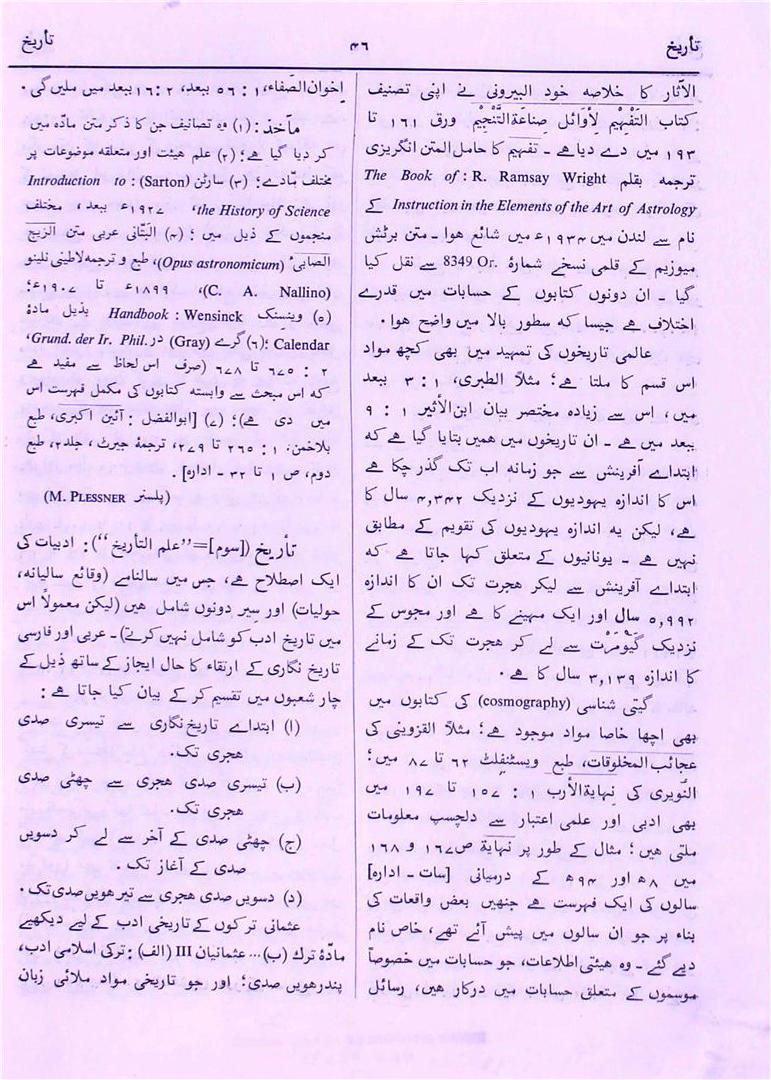 تأریخ
۴۶
تأریخ
الآثار کا خلاصہ خود البیرونی نے اپنی تصنیف
کتاب التَفْهِیْم لِأوائل صِناعَة التَّنْجِیْم ورق ۱۶۱ تا
۱۹۳ میں دے دیاہے ۔ تفہیم کا حامل المتن انگریزی
ترجمہ بقلم R. Ramsay Wright : The Book of
Instruction in the Elements of the Art of Astrology کے
نام سے لندن میں ۱۹۳۴ء میں شائع ھوا ۔ متن برٹش
میوزیم کے قلمی نسخے شمارۂ 8349 Or. سے نقل کیا
گیا ۔ ان دونوں کتابوں کے حسابات میں قدرے
اختلاف ہے جیسا کہ سطور بالا میں واضح ھوا ۔
عالمی تاریخوں کی تمہید میں بھی کچھ مواد
اس قسم کا ملتا ہے؛ مثلاً الطبری، ۱ : ۳ ببعد
میں، اس سے زیادہ مختصر بیان ابن الأثیر ۱ : ۹
ببعد میں ہے ۔ ان تاریخوں میں ہمیں بتایا گیا ہے کہ
ابتداے آفرینش سے جو زمانہ اب تک گذر چکا ہے
اس کا اندازہ یہودیوں کے نزدیک ۴,۳۴۲ سال کا
ہے، لیکن یہ اندازہ یہودیوں کی تقویم کے مطابق
نہیں ہے ۔ یونانیوں کے متعلق کہا جاتا ہے کہ
ابتداے آفرینش سے لیکر ھجرت تک ان کا اندازہ
۵,۹۹۲ سال اور ایک مہینے کا ہے اور مجوس کے
نزدیک گَیُوْمَرْت سے لے کر ھجرت تک کے زمانے
کا اندازہ ۳,۱۳۹ سال کا ہے ۔
گیتی شناسی (cosmography) کی کتابوں میں
بھی اچھا خاصا مواد موجود ہے؛ مثلاً القزوینی کی
عجائب المخلوقات، طبع ویسٹنفلٹ ۶۲ تا ۸۷ میں؛
النویری کی نہایة الأرب ۱ : ۱۵۷ تا ۱۹۷ میں
بھی ادبی اور علمی اعتبار سے دلچسپ معلومات
ملتی ھیں؛ مثال کے طور پر نہایة ص ۱۶۷ و ۱۶۸
میں ۸ھ اور ۹۴ھ کے درمیانی [سات ۔ ادارہ]
سالوں کی ایک فہرست ہے جنھیں بعض واقعات کی
بناء پر جو ان سالوں میں پیش آئے تھے، خاص نام
دیے گئے ۔ وہ ھیئتی اطلاعات، جو حسابات میں خصوصاً
موسموں کے متعلق حسابات میں درکار ھیں، رسائل
اخوان الصّفاء، ۱ : ۵۶ ببعد، ۲ : ۱۶ ببعد میں ملیں گی ۔
مآخذ : (۱) وہ تصانیف جن کا ذکر متن مادّہ میں
کر دیا گیا ہے؛ (۲) علم ھیئت اور متعلقہ موضوعات پر
مختلف مادّے؛ (۳) سارٹن (Sarton) : Introduction to
the History of Science، ۱۹۲۷ء ببعد، مختلف
منجموں کے ذیل میں؛ (۴) البتّانی عربی متن الزیج
الصابیٔ (Opus astronomicum)، طبع و ترجمہ لاطینی نلینو
(C. A. Nallino)، ۱۸۹۹ء تا ۱۹۰۷ء؛
(۵) وینسنک Wensinck : Handbook بذیل مادۂ
Calendar؛ (۶) گرے (Gray) در Grund. der Ir. Phil.،
۲ : ۶۷۵ تا ۶۷۸ (صرف اس لحاظ سے مفید ہے
کہ اس مبحث سے وابستہ کتابوں کی مکمل فہرست اس
میں دی ہے)؛ (۷) [ابوالفضل : آئین اکبری، طبع
بلاخمن، ۱ : ۲۶۵ تا ۲۷۹، ترجمۂ جیرٹ، جلد ۲، طبع
دوم، ص ۱ تا ۳۲ ۔ ادارہ] ۔
(پلسنر M. PLESSNER)
تأریخ ([سوم]=”علم التأریخ“): ادبیات کی
ایک اصطلاح ہے، جس میں سالنامے (وقائع سالیانہ،
حولیات) اور سِیَر دونوں شامل ھیں (لیکن معمولاً اس
میں تاریخ ادب کو شامل نہیں کرتے) ۔ عربی اور فارسی
تاریخ نگاری کے ارتقاء کا حال ایجاز کے ساتھ ذیل کے
چار شعبوں میں تقسیم کر کے بیان کیا جاتا ہے :
(ا) ابتداے تاریخ نگاری سے تیسری صدی
ھجری تک ۔
(ب) تیسری صدی ھجری سے چھٹی صدی
ھجری تک ۔
(ج) چھٹی صدی کے آخر سے لے کر دسویں
صدی کے آغاز تک ۔
(د) دسویں صدی ھجری سے تیرھویں صدی تک ۔
عثمانی ترکوں کے تاریخی ادب کے لیے دیکھیے
مادّۂ ترك (ب)... عثمانیان III (الف) : ترکی اسلامی ادب،
پندرھویں صدی؛ اور جو تاریخی مواد ملائی زبان